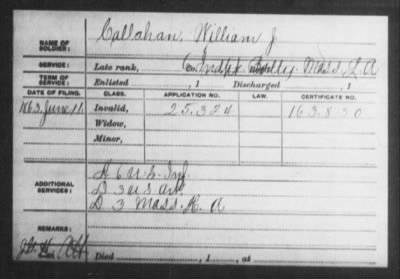 NAME OF SOLDIER: Callahan, William J
SERVICE: Late rank, Co. Indpt Mass. H. A
TERM OF SERVICE: Enlisted , 1 Discharged , 1
DATE OF FILING. CLASS. APPLICATION NO. LAW. CERTIFICATE NO.
1863 June 11 Invalid, 25.324 163.830
Widow,
Minor,
ADDITIONAL SERVICES: H 6 U.S. Inf.
D 3 U.S. Art.
D 3 Mass. H. A
REMARKS:
Died , 1 , at